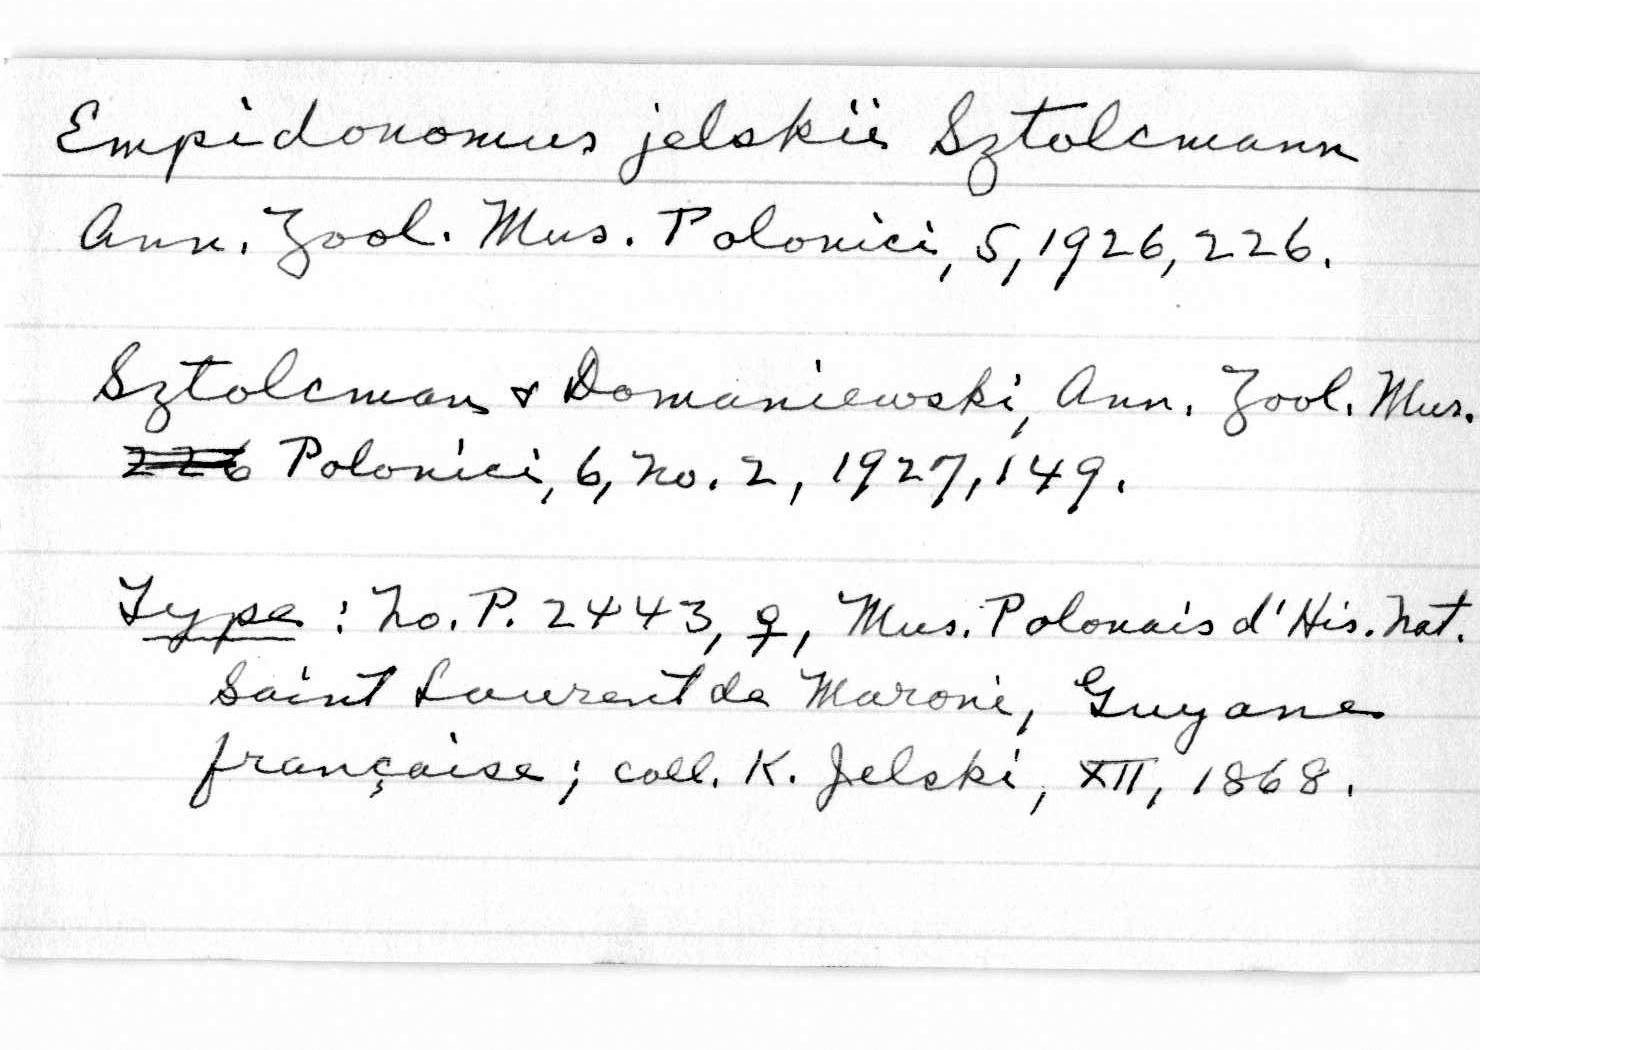 Empidonomus jelskii Sztolcmann
Ann. Zool. Mus. Polonici, 5, 1926, 226.
Sztolcman & Domaniewski, Ann. Zool. Mus.
226 Polonici, 6, no. 2, 1927, 149.
Type: no. P. 2443, ♀, Mus. Polonais d'His. nat.
Saint Laurent de Maroni, Guyane
française; coll. K. Jelski, XII, 1868.